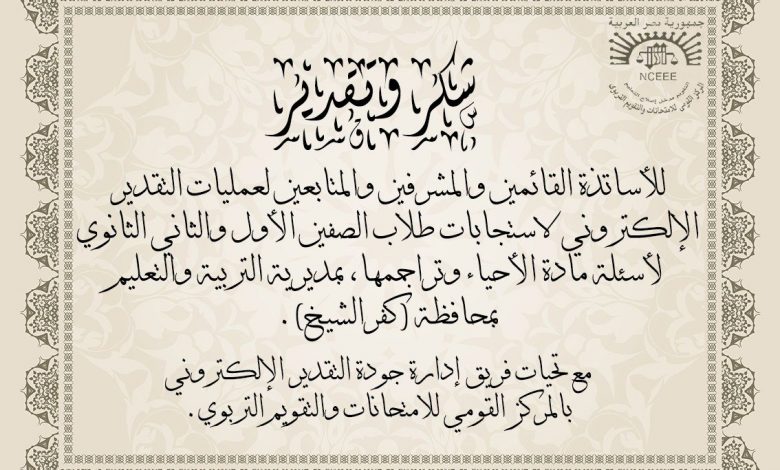 جمهورية مصر العربية
NCEEE
المركز القومي للامتحانات والتقويم التربوي
شكر وتقدير
للأساتذة القائمين والمشرفين والمتابعين لعمليات التقدير
الإلكتروني لاستجابات طلاب الصفين الأول والثاني الثانوي
لأسئلة مادة الأحياء وتراجمها، بمديرية التربية والتعليم
بمحافظة (كفر الشيخ).
مع تحيات فريق إدارة جودة التقدير الإلكتروني
بالمركز القومي للامتحانات والتقويم التربوي.